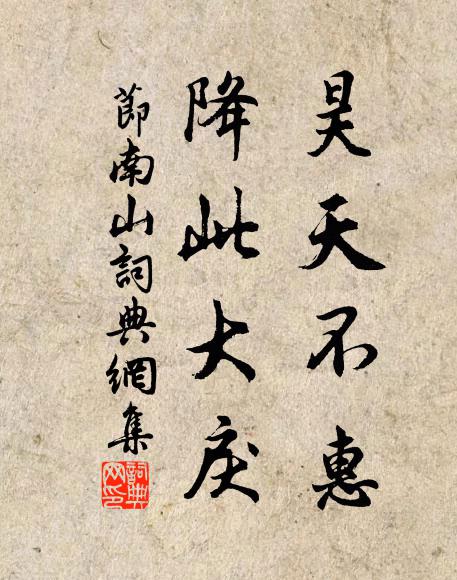 昊天不惠
降此大戾
節南山詞典網集
詞典网印